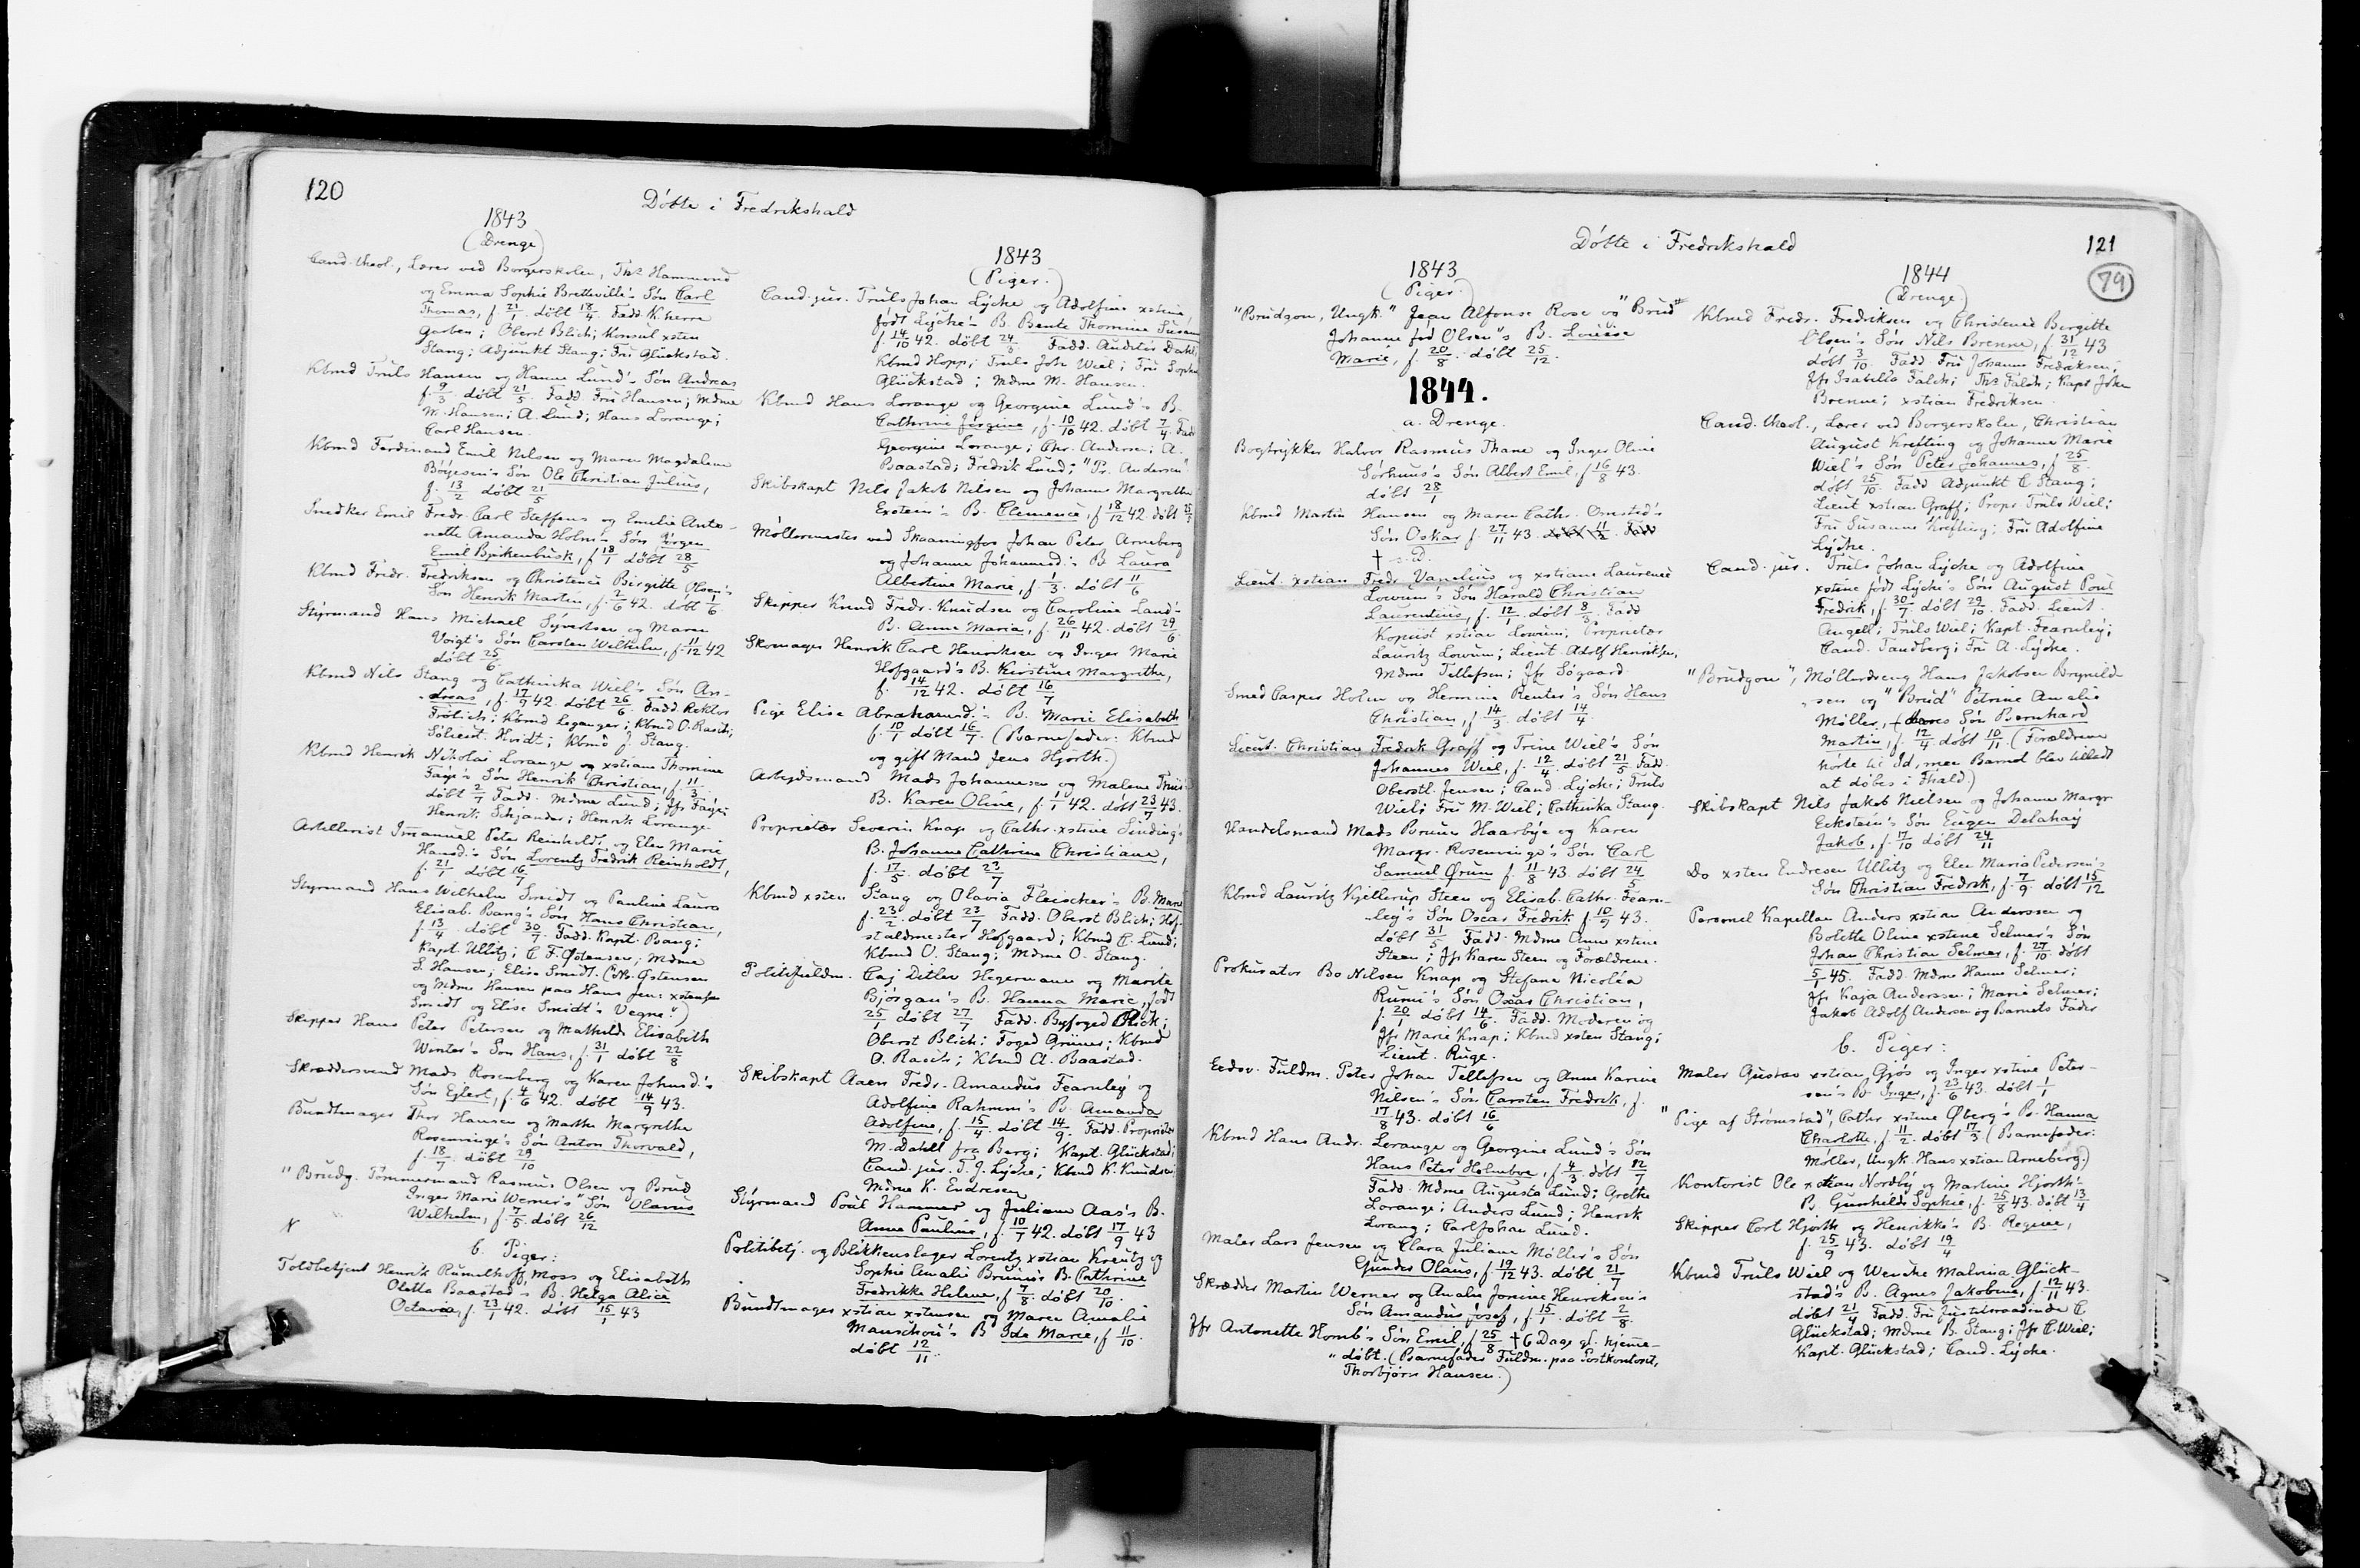 120
Döbte i Fredrikshald
1843
(Drenge)
Cand. theol., Lærer ved Borgerskolen, Ths Hammond
og Emma Sophie Bretteville's Sön Carl
Thomas, f. 21/1 döbt 18/4. Fadd. K.herre
Garben; Oberst Blich; Konsul xsten
Stang; Adjunkt Stang; Fru Glückstad.
Kbmd Truls Hansen og Hanne Lund's Sön Andreas
f. 9/3 döbt 21/5. Fadd. Fru Hansen; Mdme
M. Hansen; A. Lund; Hans Lorange;
Carl Hansen.
Kbmd Ferdinand Emil Nilsen og Maren Magdalene
Böyesen's Sön Ole Christian Julius,
f. 13/2 döbt 21/5
Snedker Emil Fredr. Carl Steffens og Emilie Anto-
nette Amanda Holm's Sön Jörgen
Emil Birkenbusk, f 18/1 döbt 28/5
Kbmd Fredr. Fredriksen og Christence Birgitte Olsen's
Sön Henrik Martin, f. 2/6 42. döbt 1/6
Styrmand Hans Michael Syvertsen og Maren
Voigt's Sön Carsten Wilhelm, f. 11/12 42
döbt 25/6
Kbmd Nils Stang og Cathinka Wiel's Sön An-
dreas, f. 17/9 42. döbt 26/6. Fadd. Rektor
Frölich; Kbmd Leganger; Kbmd O. Rasch;
Sölieut. Hvidt; Kbmd J. Stang.
Kbmd Henrik Nikolai Lorange og xstiane Thomine
Faye's Sön Henrik Christian, f. 11/3
döbt 2/7 Fadd. Mdme Lund; Jfr Faye;
Henrik Schjander; Henrik Lorange
Artillerist Immanuel Peter Reinholdt og Elen Marie
Hansd.'s Sön Lorentz Fredrik Reinholdt,
f. 21/1 döbt 16/7
Styrmand Hans Wilhelm Smidt og Pauline Laura
Elisab. Bang's Sön Hans Christian,
f 13/4 döbt 30/7. Fadd. Kapt. Bang;
Kapt. Ullitz; C. F. Østensen; Mdme
S. Hansen; Elise Smidt. ("NB. Østensen
og Mdme Hansen paa Hans Jen: xstense
Smidt og Elise Smidt's Vegne.")
Skipper Hans Peter Petersen og Mathilde Elisabeth
Winter's Sön Hans, f. 31/1 döbt 22/8
Skræddersvend Mads Rosenberg og Karen Johnsd.'s
Sön Ejlert, f. 4/6 42. döbt 14/9 43.
Bundtmager Thor Hansen og Marthe Margrethe
Rosenvinge's Sön Anton Thorvald,
f. 18/7 döbt 29/10
"Brudg. Tömmermand Rasmus Olsen og Brud
Inger Marie Werner's" Sön Olavus
Wilhelm, f. 7/5. döbt 26/12
b. Piger:
Toldbetjent Henrik Rumelhoff, Moss og Elisabeth
Oletta Baastad's B. Helga Alice
Octavia, f. 23/1 42. döbt 15/1 43
1843
(Piger.)
Cand. jur. Truls Johan Lycke og Adolfine xstine,
födt Lycke's B. Bente Thomine Susanne
f. 14/10 42. döbt 24/3 Fadd. Auditör Dahl;
Kbmd Hopp; Truls Joh Wiel; Fru Sophie
Glückstad; Mdme M. Hansen.
Kbmd Hans Lorange og Georgine Lund's B.
Cathrine Jörgine, f. 10/10 42. döbt 7/4. Fadd
Georgine Lorange; Chr. Andersen; A.
Baastad; Fredrik Lund; "Pr. Andersen"
Skibskapt Nils Jakob Nilsen og Johanne Margrethe
Exstein's B. Clemence, f 18/12 42 döbt 25/5
Möllermester ved Skanningfos Johan Peter Arneberg
og Johanne Johannesd.'s B. Laura
Albertine Marie, f. 1/3. döbt 11/6
Skipper Knud Fredr. Knudsen og Caroline Lund's
B. Anne Maria, f. 26/11 42. döbt 29/6
Skomager Henrik Carl Henriksen og Inger Marie
Hofgaard's B. Kirstine Margrethe,
f. 14/12 42. döbt 16/7
Pige Elise Abrahamsd.'s B. Marie Elisabeth
f. 10/1 döbt 16/7. (Barnefader: Kbmd
og gift Mand Jens Hjorth.)
Arbejdsmand Mads Johannesen og Malene Truls
B. Karen Oline, f. 1/1 42. döbt 23/7 43.
Proprietær Severin Knap og Cathr. xstine Sinding's
B. Johanne Cathrine Christiane,
f. 17/5 döbt 23/7
Kbmd xsten Stang og Olavia Fleischer's B. Marie
f. 23/2. döbt 23/7 Fadd. Oberst Blich; Hof-
staldmester Hofgaard; Kbmd C. Lund;
Kbmd O. Stang; Mdme O. Stang.
Politifuldm. Caj Ditlev Hegermann og Marite
Björgan's B. Hanna Marie, födt
25/1 döbt 27/7 Fadd. Byfoged Blich;
Oberst Blich; Foged Grüner; Kbmd
O. Rasch; Kbmd A. Baastad.
Skibskapt Aaen Fredr. Amandus Fearnley og
Adolfine Rahmm's B. Amanda
Adolfine, f. 15/4. döbt 14/9. Fadd. Proprietær
M. Dahll fra Berg; Kapt. Glückstad;
Cand. jur. T. J. Lycke; Kbmd K. Knudsen;
Mdme K. Endresen
Styrmand Poul Hammer og Juliane Aas's B.
Anne Pauline, f. 10/7 42. döbt 17/9 43
Politibetj. og Blikkenslager Lorentz xstian Kreutz og
Sophie Amalie Bruun's B. Cathrine
Fredrikke Helene, f. 7/8. döbt 20/10.
Bundtmager xstian xstensen og Maren Amalie
Manschou's B Ida Marie, f 11/10.
döbt 12/11.
Döbte i Fredrikshald
121
79
1843
(Piger.)
"Brudgom, Ungk." Jean Alfonse Rose og "Brud"
Johanne föd Olsen"s B. Louise
Marie, f. 20/8. döbt 25/12.
1844.
a. Drenge.
Bogtrykker Halvor Rasmus Thane og Inger Oline
Sörhuus's Sön Albert Emil, f 16/8 43.
döbt 28/1
Kbmd Martin Hansen og Maren Cathr. Ormstad's
Sön Oskar f. 27/11 43. döbt 11/2. Fadd
† s. D.
Lieut. xstian Fredr Vanelius og xstiane Laurence
Lowum's Sön Harald Christian
Laurentius, f. 12/1. döbt 8/3. Fadd
Kopiist xstian Lowum; Proprietær
Lauritz Lowum; Lieut. Adolf Henriksen,
Mdme Tellefsen; Jfr Sögaard.
Smed Casper Holm og Hermine Reuter's Sön Hans
Christian, f. 14/3 döbt 14/4.
Lieut. Christian Fredrik Graff og Trine Wiel's Sön
Johannes Wiel, f. 12/4. döbt 21/5 Fadd.
Oberstl. Jensen; Cand. Lycke; Truls
Wiel; Fru M. Wiel; Cathinka Stang.
Handelsmand Mads Bruun Haarbye og Karen
Margr. Rosenvinge's Sön Carl
Samuel Ørum f. 11/8 43. döbt 24/5
Kbmd Lauritz Kjellerup Steen og Elisab. Cathr. Fearn-
ley's Sön Oscar Fredrik f. 10/9 43.
döbt 31/5 Fadd. Mdme Anne xstine
Steen; Jfr Karen Steen og Forældrene.
Prokurator Bo Nilsen Knap og Stefane Nicoléa
Ruun's Sön Oscar Christian,
f. 20/1 döbt 14/6. Fadd. Moderen og
Jfr Marie Knap; Kbmd xsten Stang;
Lieut. Ruge.
Eedsv. Fuldm. Peter Johan Tellefsen og Anne Karine
Nilsen's Sön Carsten Fredrik, f.
17/8 43. döbt 16/6
Kbmd Hans Andr. Lorange og Georgine Lund's Sön
Hans Peter Holmboe, f. 4/3. döbt 12/7
Fadd. Mdme Augusta Lund; Grethe
Lorange; Anders Lund; Henrik
Lorang; Carl Johan Lund.
Maler Lars Jensen og Clara Juliane Möller's Sön
Gunder Olaus, f. 19/12 43. döbt 21/7
Skrædder Martin Werner og Amalie Jonine Henriksen's
Sön Amandus Josef, f 15/1. döbt 2/8.
Jfr Antonette Homb's Sön Emil, f 25/8 † 6 Dage gl. hjemme-
döbt. (Barnefader Fuldm. paa Postkontoret,
Thorbjörn Hansen.)
1844
(Drenge)
Kbmd Fredr. Fredriksen og Christence Bergitte
Olsen's Sön Nils Brenne, f. 31/12 43
döbt 3/10 Fadd. Fru Johanne Fredriksen;
Jfr Isabella Falch; Ths Falch; Kapt John
Brenne; xstian Fredriksen.
Cand. theol., Lærer ved Borgerskolen, Christian
August Krefting og Johanne Marie
Wiel's Sön Peter Johannes, f. 25/8.
döbt 25/10. Fadd Adjunkt C Stang;
Lieut xstian Graff; Propr. Truls Wiel;
Fru Susanne Krefting; Fru Adolfine
Lycke.
Cand. jur. Truls Johan Lycke og Adolfine
xstine födt Lycke's Sön August Poul
Fredrik, f. 30/7 döbt 29/10. Fadd. Lieut.
Angell; Truls Wiel; Kapt. Fearnley;
Cand. Tandberg; Fru A. Lycke.
"Brudgom", Möllerdreng Hans Jakobsen Brynild-
sen og "Brud" Petrine Amalie
Möller, Sön Bernhard
Martin, f. 12/4 döbt 10/11. (Forældrene
hörte til Id, men Barnet blev tilladt
at döbes i Fhald)
Skibskapt Nils Jakob Nielsen og Johanne Margr.
Eckstein's Sön Eugen Delahay
Jakob, f. 17/10 döbt 24/11
Do xsten Endresen Ullitz og Elen Maria Pedersen's
Sön Christian Fredrik, f. 7/9. döbt 15/12
Personel Kapellan Anders xstian Anderssen og
Bolette Oline xstine Selmer's Sön
Johan Christian Selmer, f. 27/10 döbt
5/1 45. Fadd. Mdme Hanne Selmer;
Jfr Kaja Anderssen; Marie Selmer;
Jakob Adolf Andersen og Barnets Fader
b. Piger:
Maler Gustav xstian Gjös og Inger xstine Peter-
sen's B. Inger, f. 23/6 43. döbt 1/1
"Pige af Strömstad", Cathr xstine Øberg's B. Hanna
Charlotte, f. 11/2. döbt 17/3 (Barnefader:
Møller, Ungk. Hans xstian Arneberg.)
Kontorist Ole xstian Nordby og Martine Hjorth's
B. Gunhilde Sophie, f. 25/8 43. döbt 13/4
Skipper Cort Hjorth og Henrikke's B. Regine,
f. 25/9 43. döbt 19/4
Kbmd Truls Wiel og Wencke Malvina Glück-
stad's B. Agnes Jakobine, f. 12/11 43.
döbt 21/4 Fadd. Fru Justitsraadinde C
Glückstad; Mdme B. Stang; Jfr C. Wiel;
Kapt. Glückstad; Cand. Lycke.